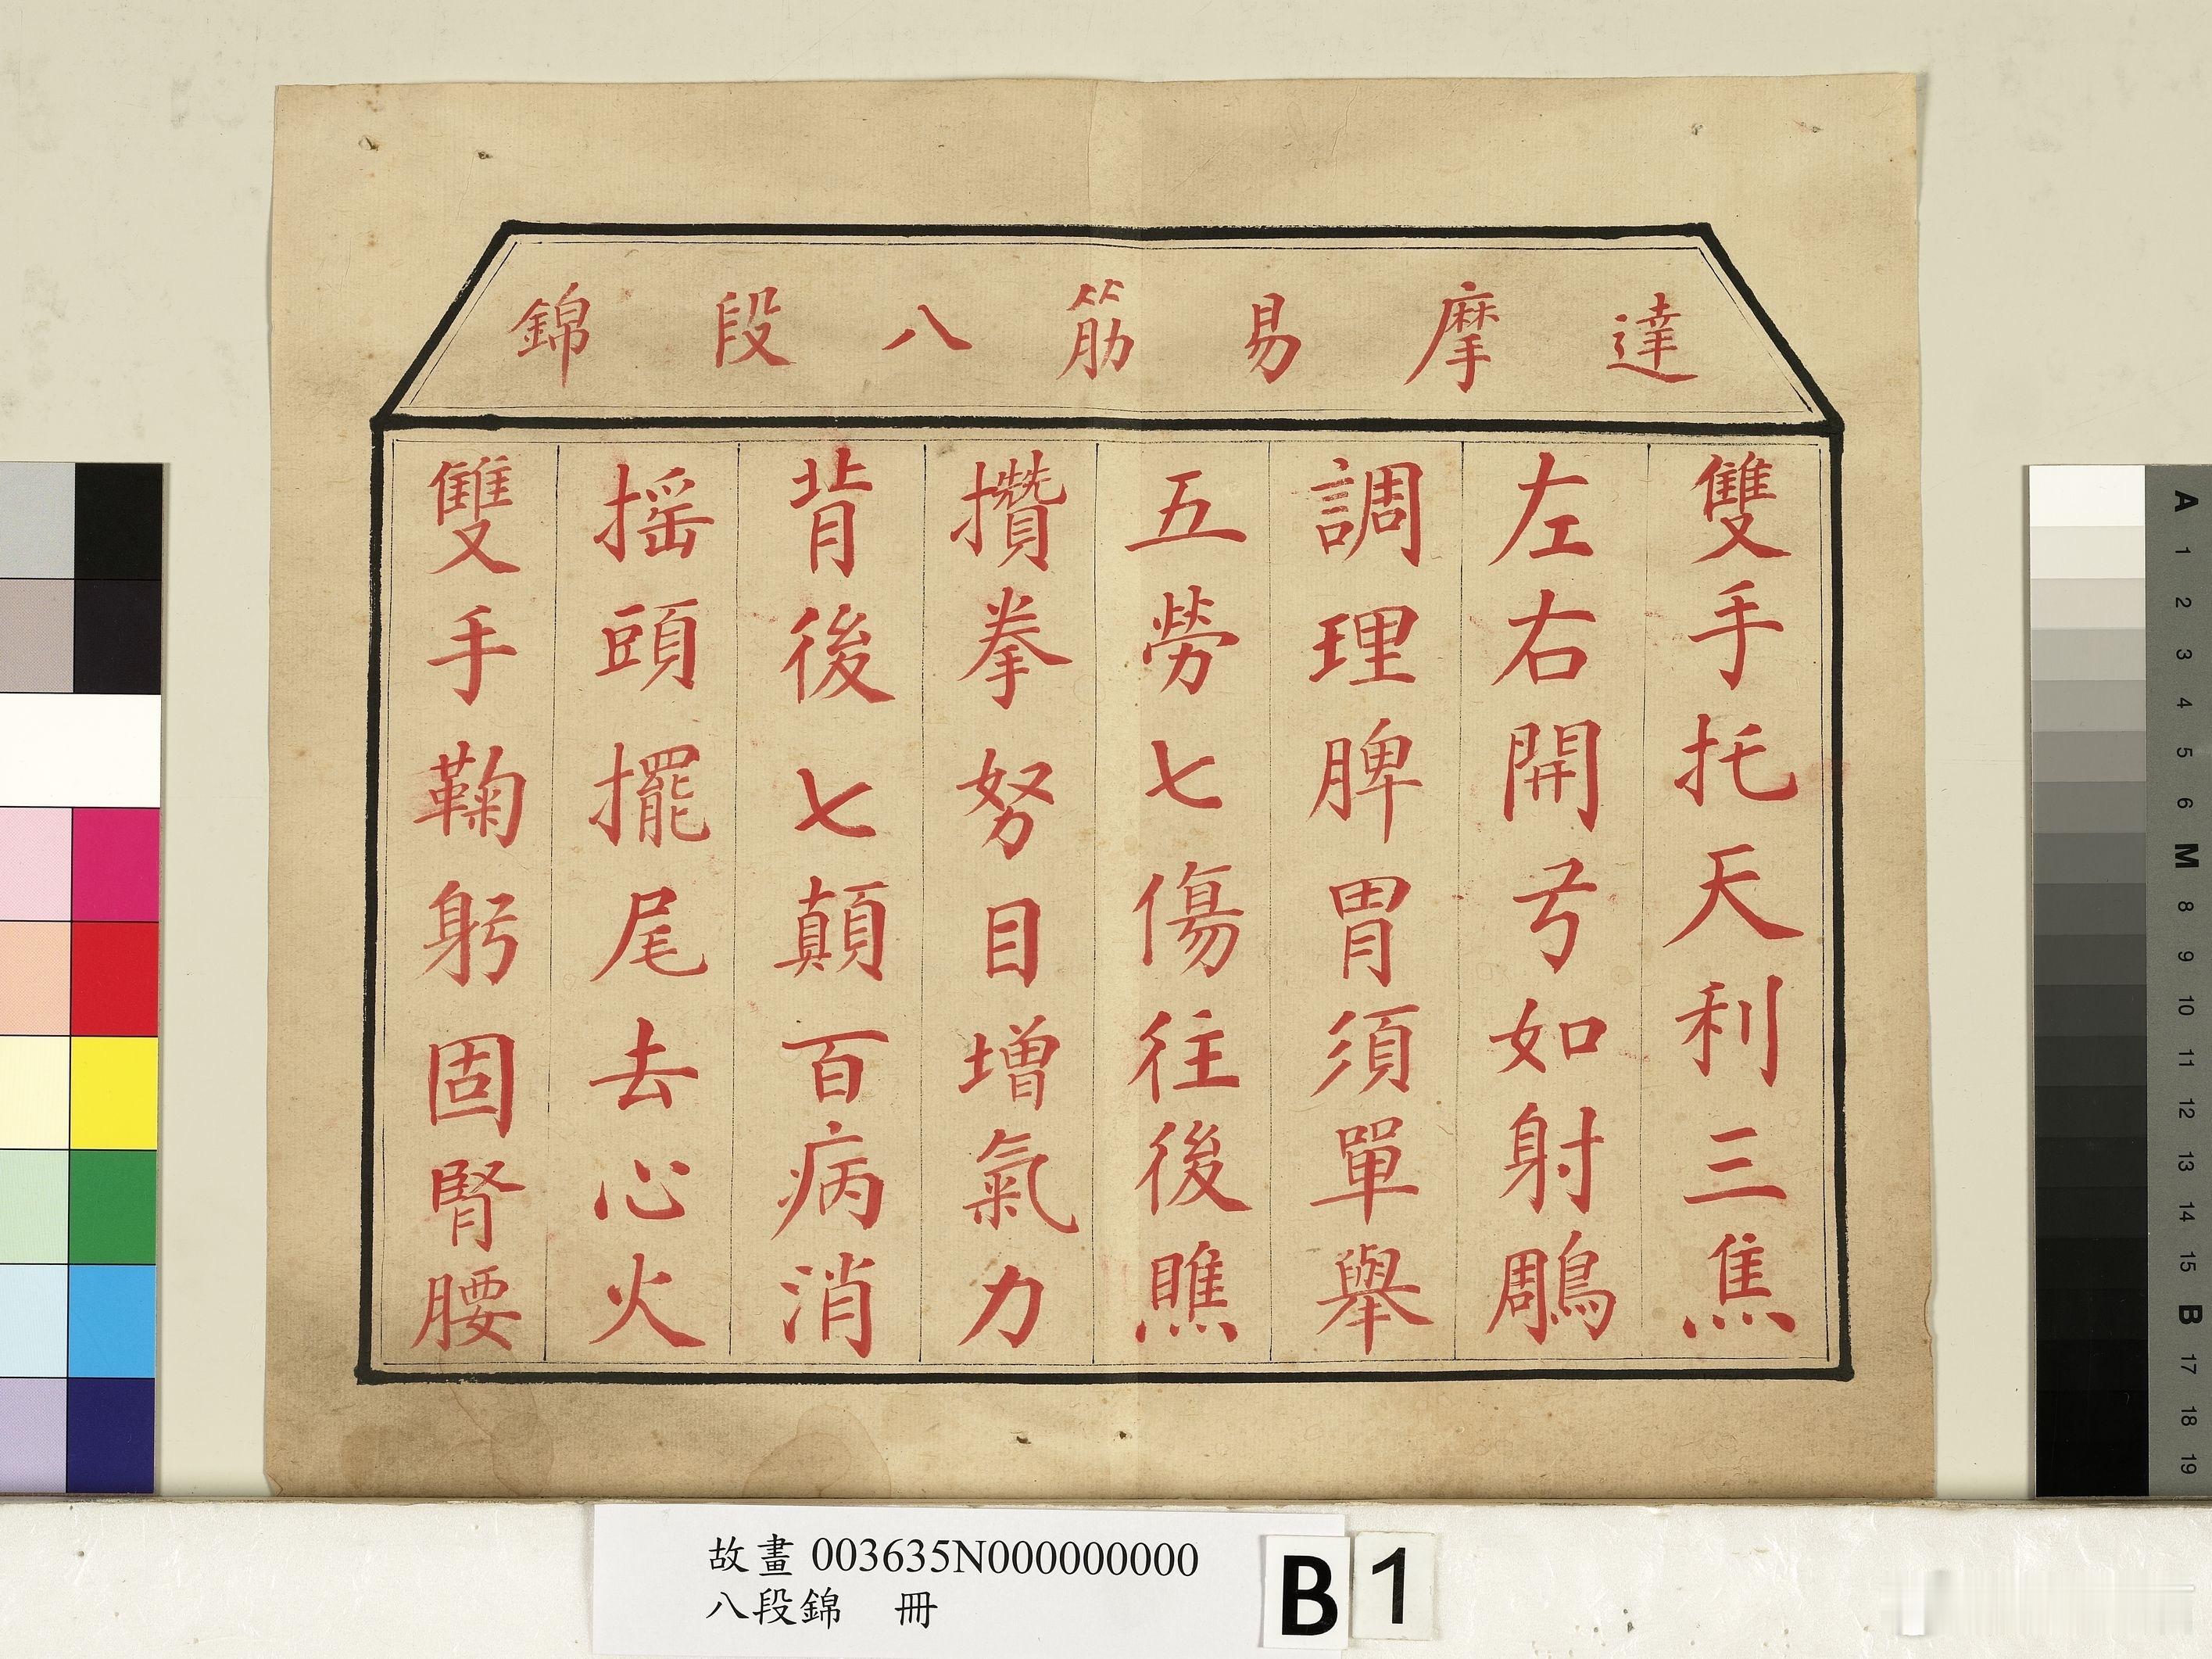 達摩易筋八段錦
雙手托天利三焦
左右開弓如射鵰
調理脾胃須單舉
五勞七傷往後瞧
攢拳努目增氣力
背後七顛百病消
搖頭擺尾去心火
雙手鞠躬固腎腰
故畫 003635N000000000
八段錦 冊
B 1
A
1
2
3
4
5
6
M
8
9
10
11
12
13
14
15
B
17
18
19